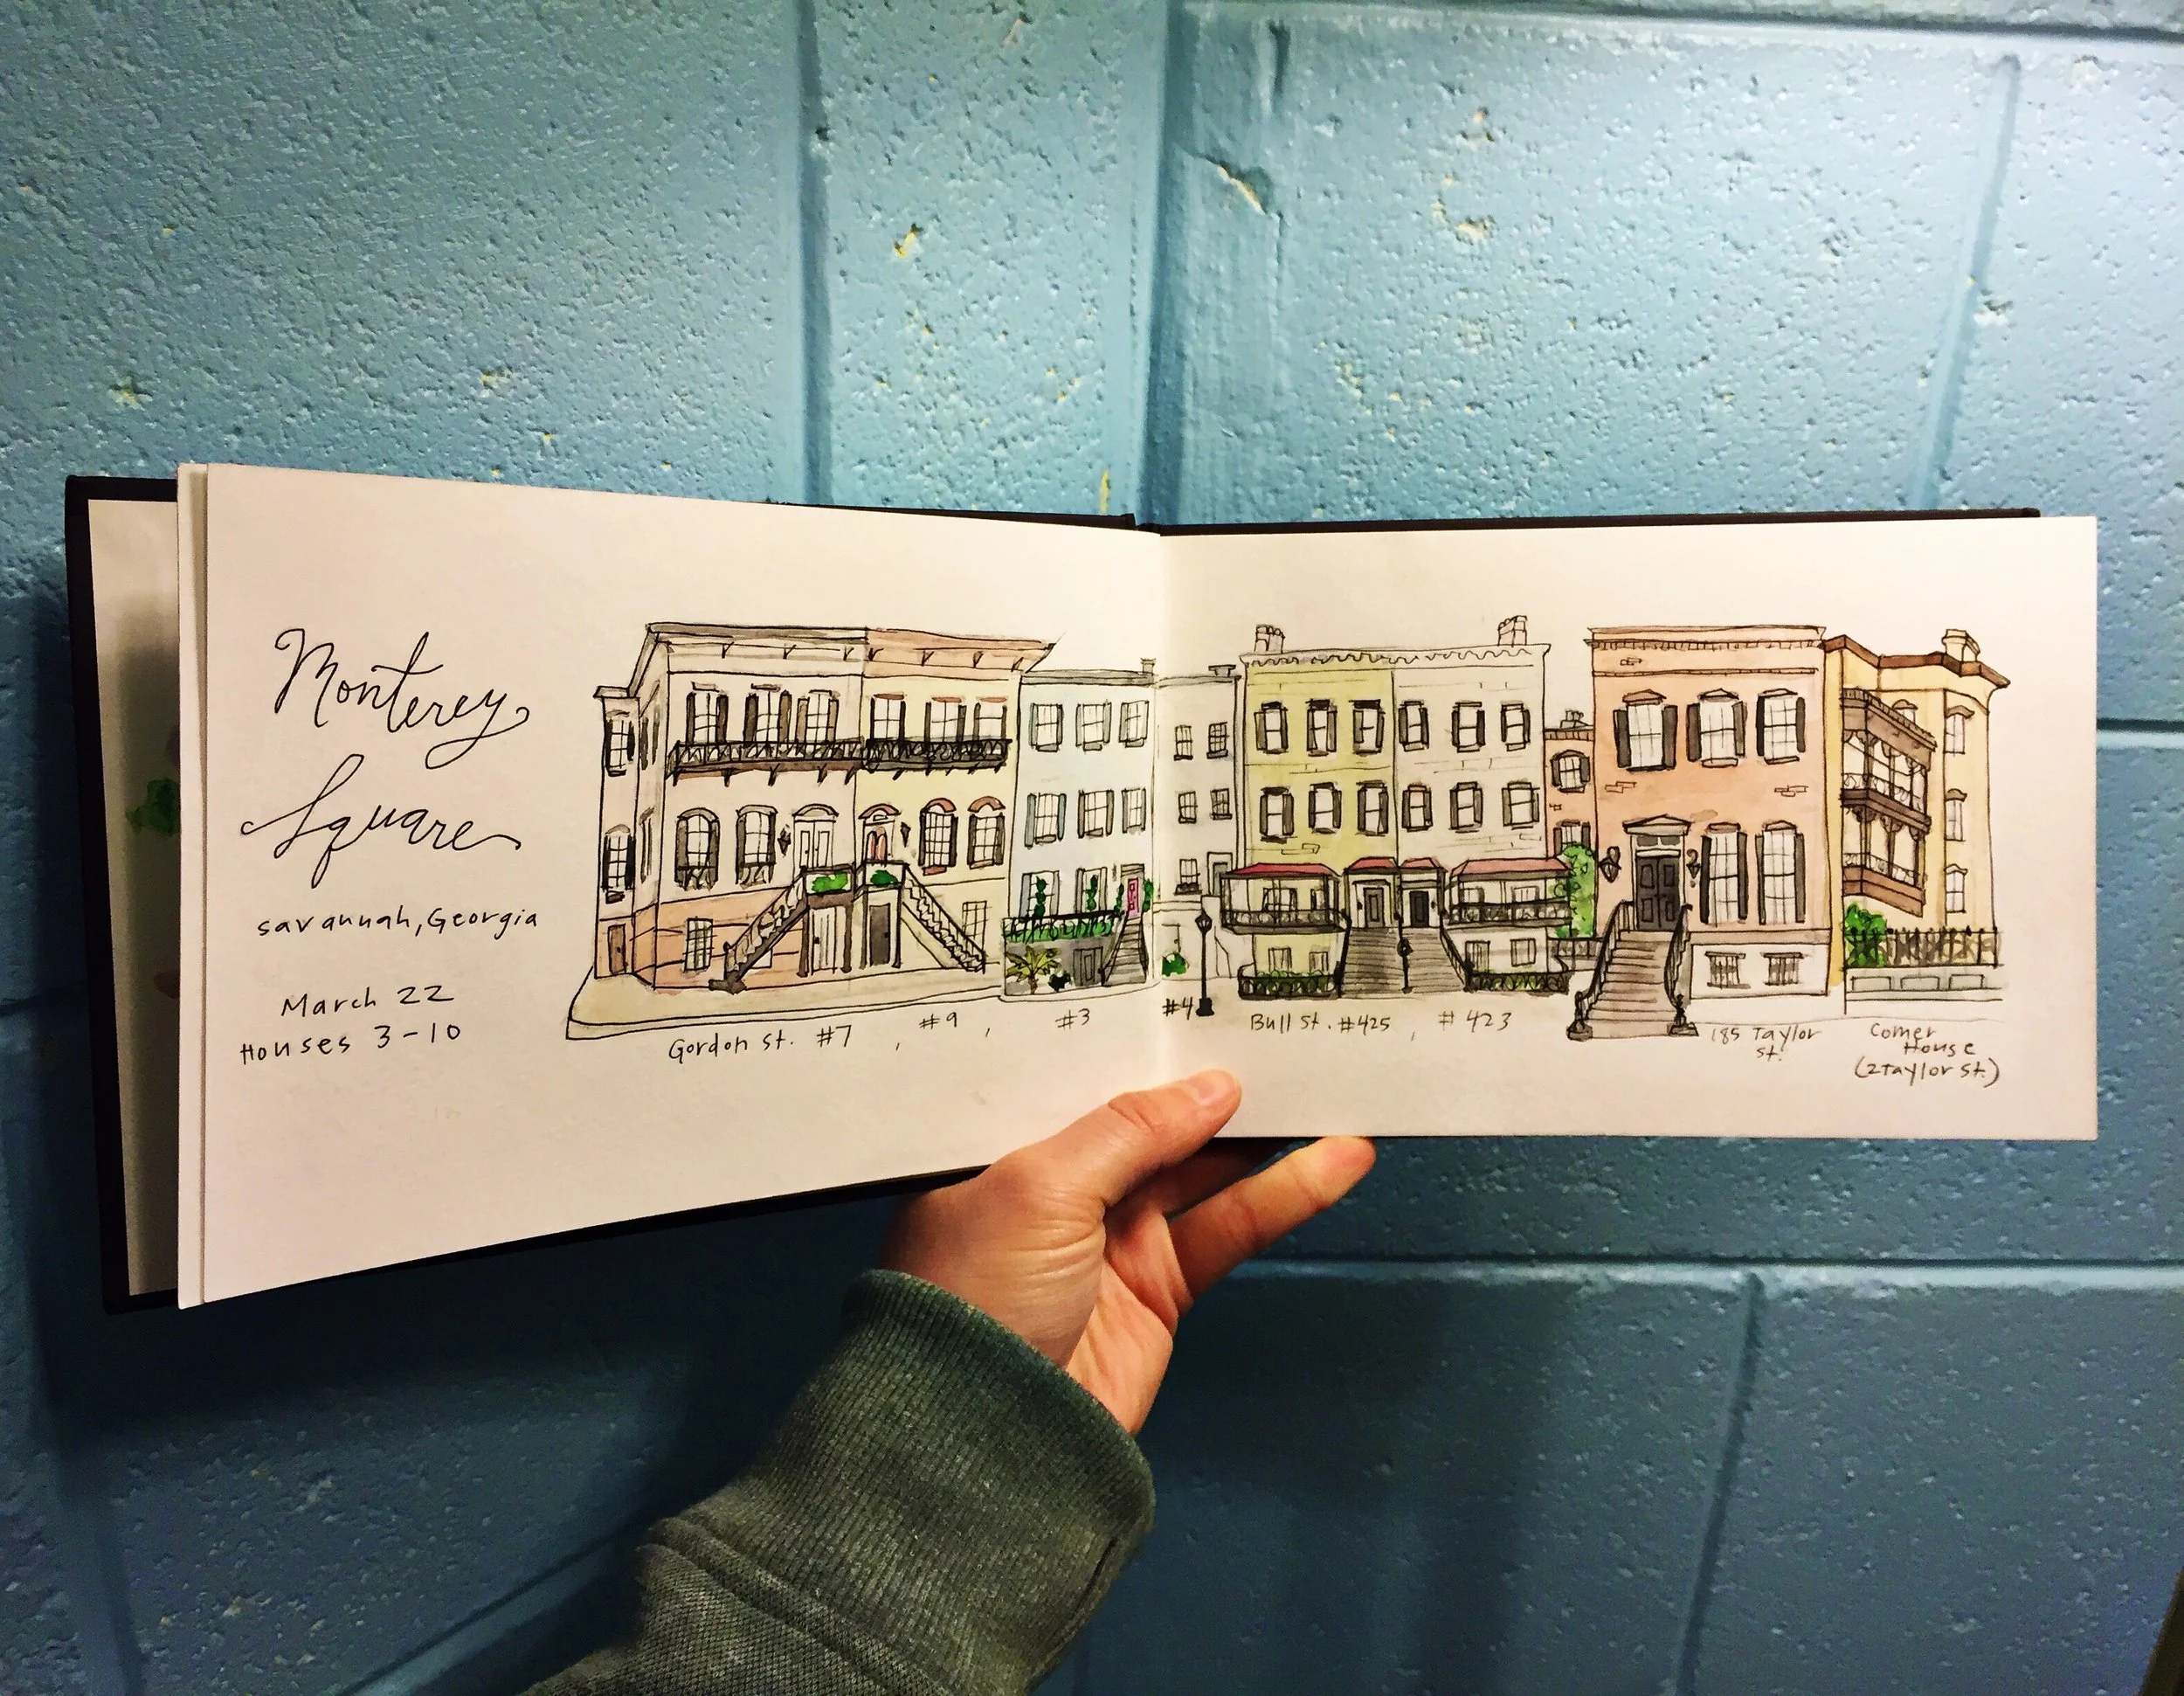 Monterey
Square
savannah, Georgia
March 22
Houses 3-10
Gordon St. #7, #9, #3
#4
Bull St. #425, #423
185 Taylor
St.
Comer
House
(2 Taylor St.)